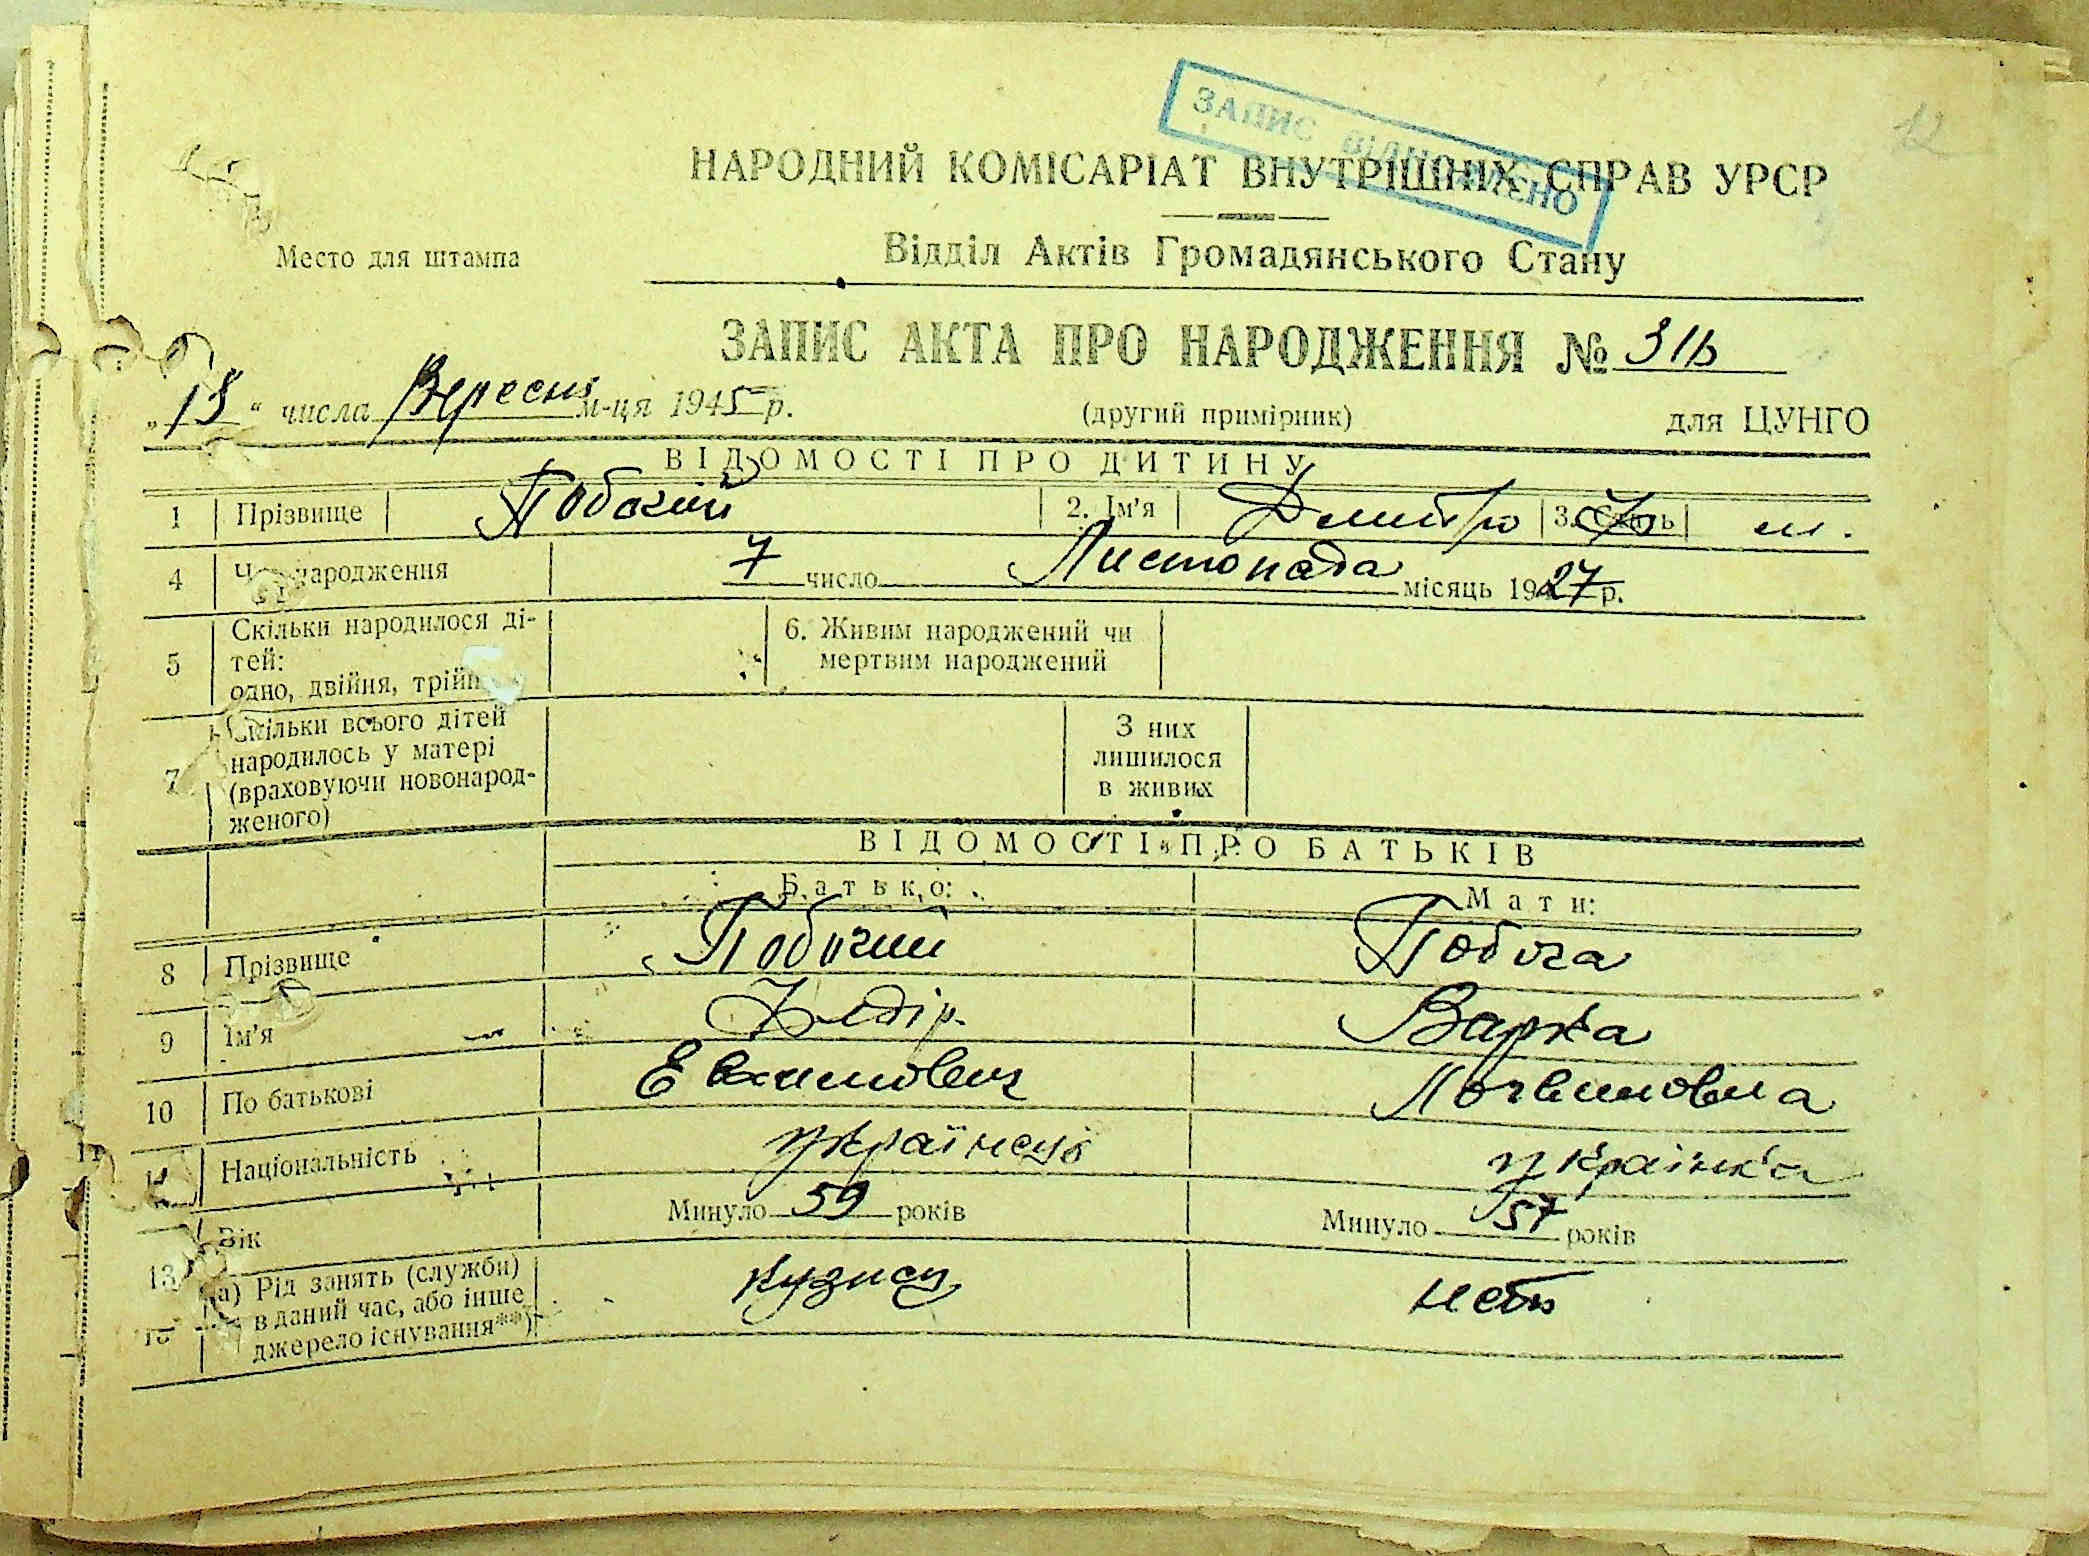 12
ЗАПИС ВІДНОВЛЕНО
НАРОДНИЙ КОМІСАРІАТ ВНУТРІШНІХ СПРАВ УРСР
Место для штампа
Відділ Актів Громадянського Стану
ЗАПИС АКТА ПРО НАРОДЖЕННЯ №
„13“ числа Вересня м-ця 1945 р. (другий примірник) для ЦУНГО
ВІДОМОСТІ ПРО ДИТИНУ
1 Прізвище 2. Ім'я Дмитро 3. Стать м.
4 народження 7 число Листопада місяць 1927 р.
5 Скільки народилося ді-
тей:
одно, двійня, трійн
6. Живим народжений чи
мертвим народжений
7 Скільки всього дітей
народилось у матері
(враховуючи новонарод-
женого)
З них
лишилося
в живих
ВІДОМОСТІ ПРО БАТЬКІВ
Батько: Мати:
8 Прізвище Побочий Побоча
9 Ім'я Варка
10 По батькові Логвиновна
11 Національність українець українка
Вік Минуло 59 років Минуло 57 років
13 а) Рід занять (служби)
в даний час, або інше
джерело існування**)
кузнец нет